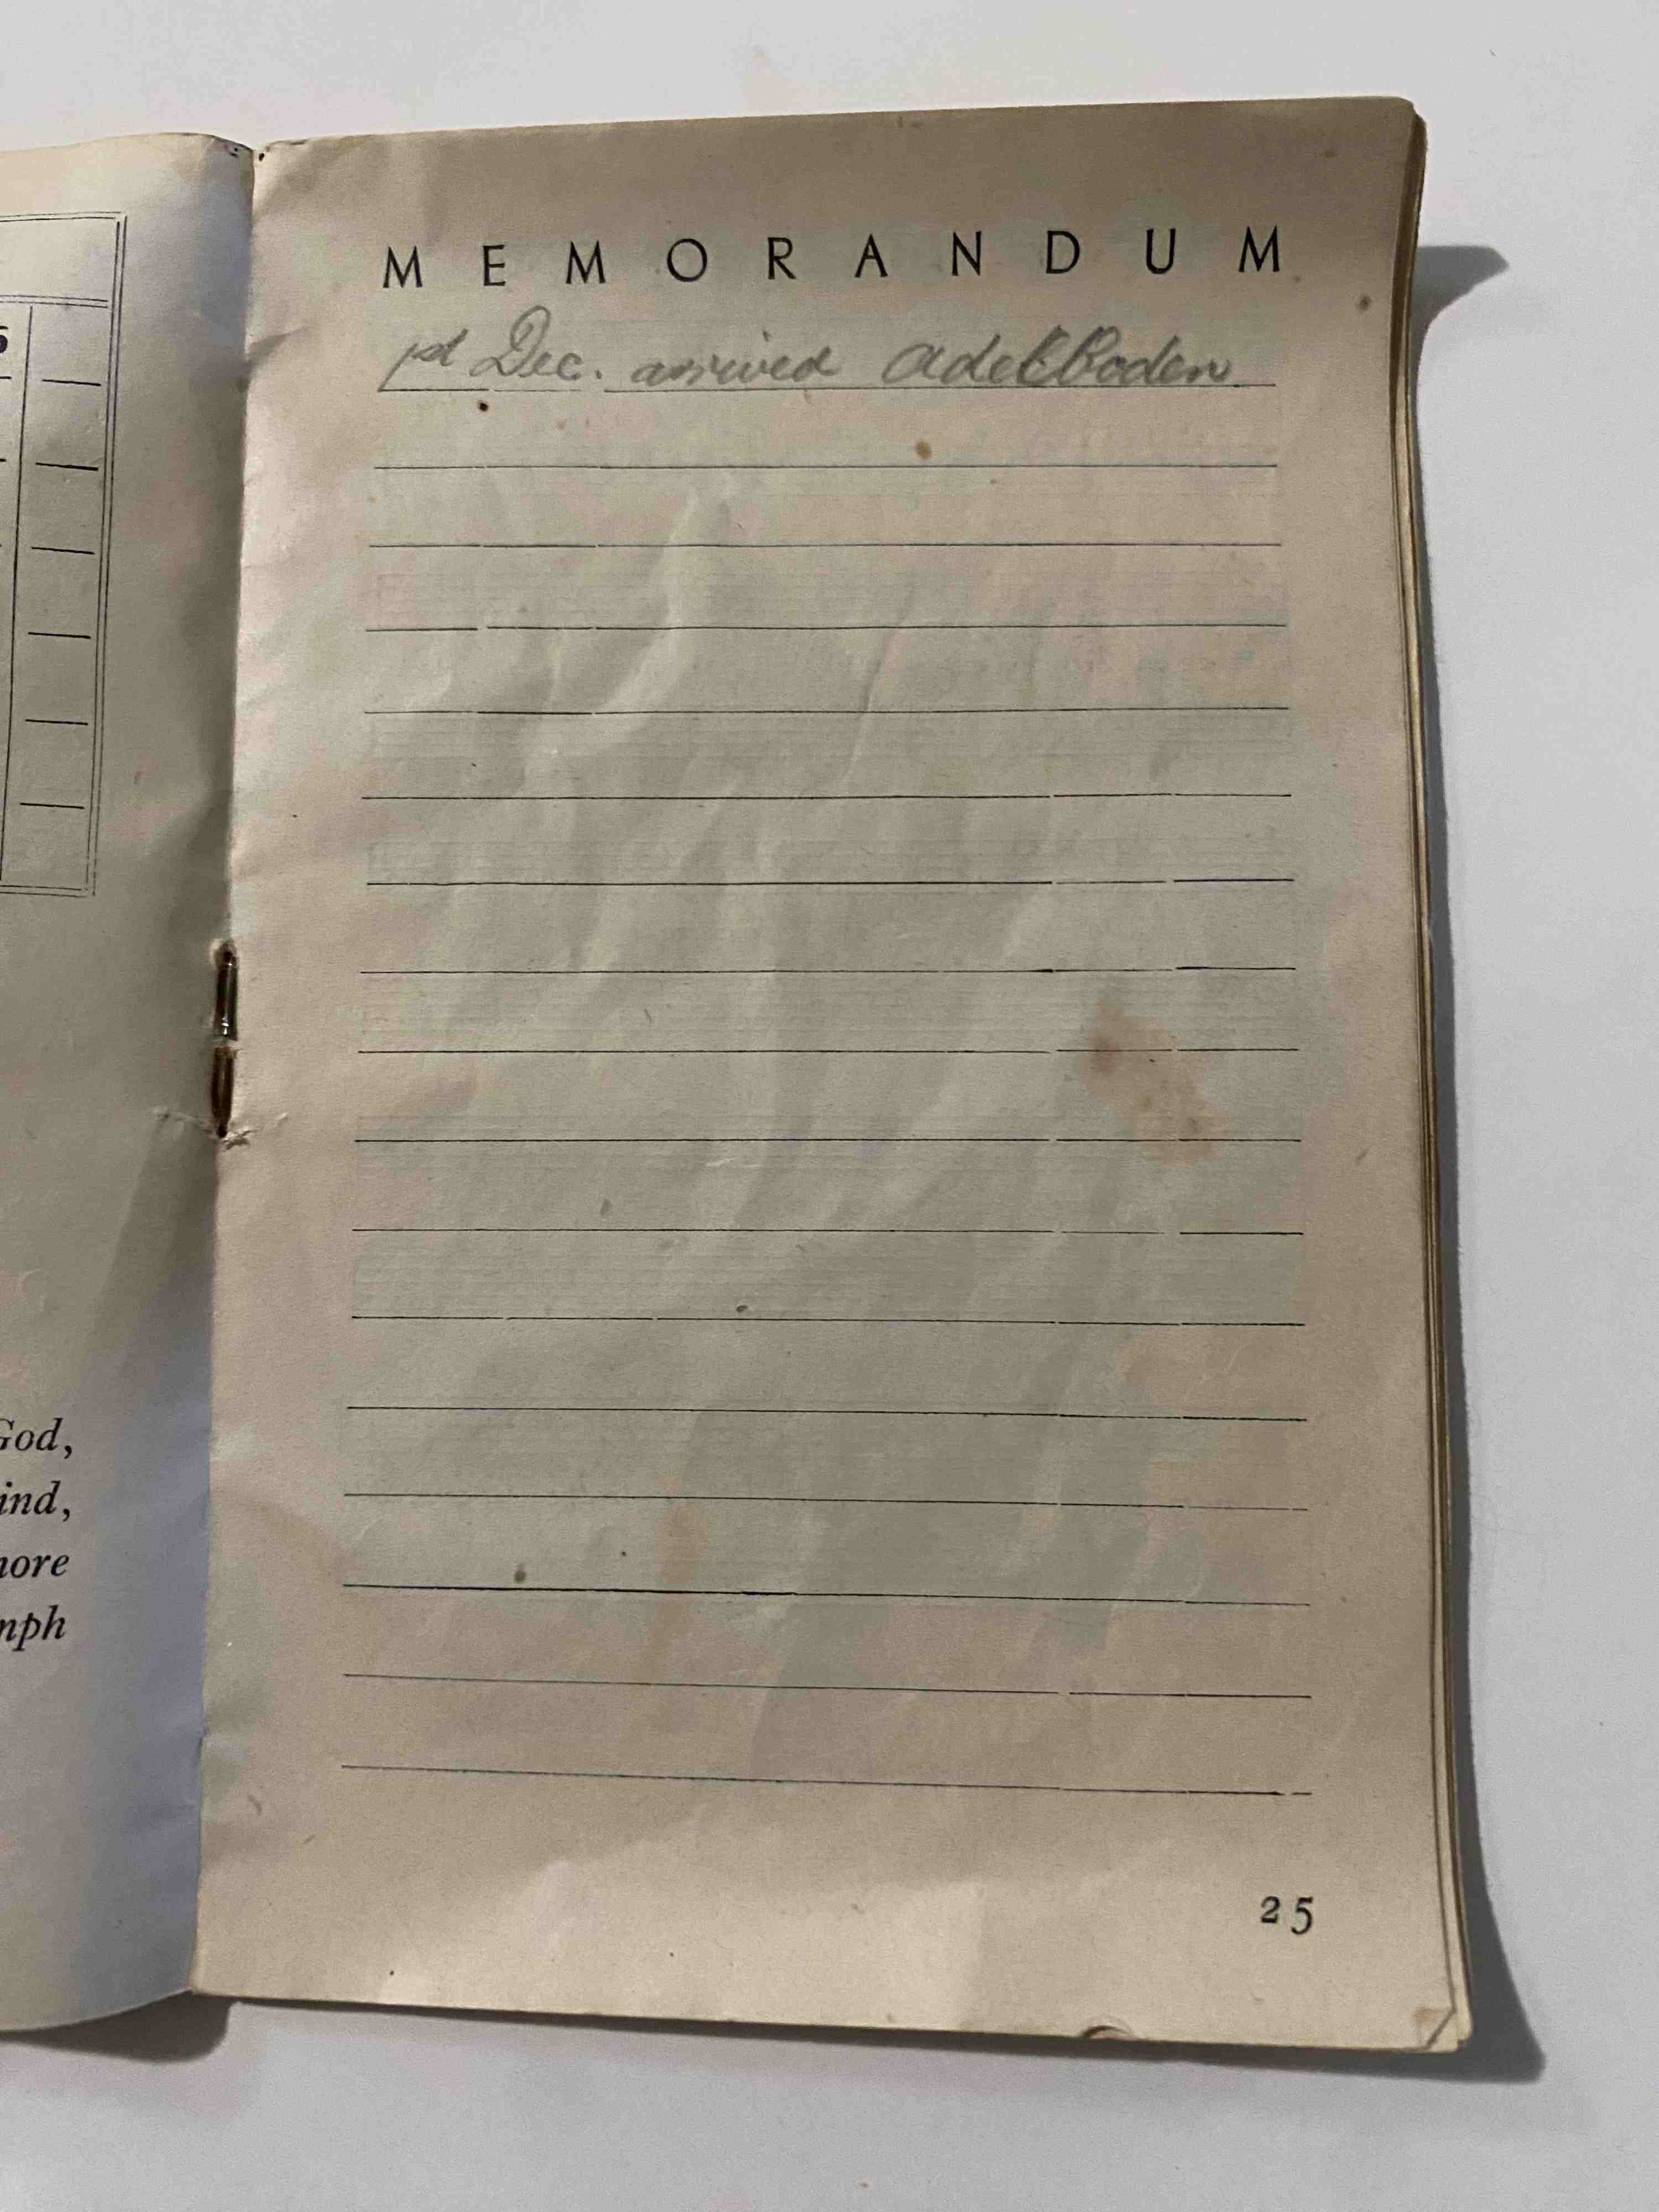 5
God,
ind,
nore
mph
MEMORANDUM
1st Dec. arrived Adelboden
25